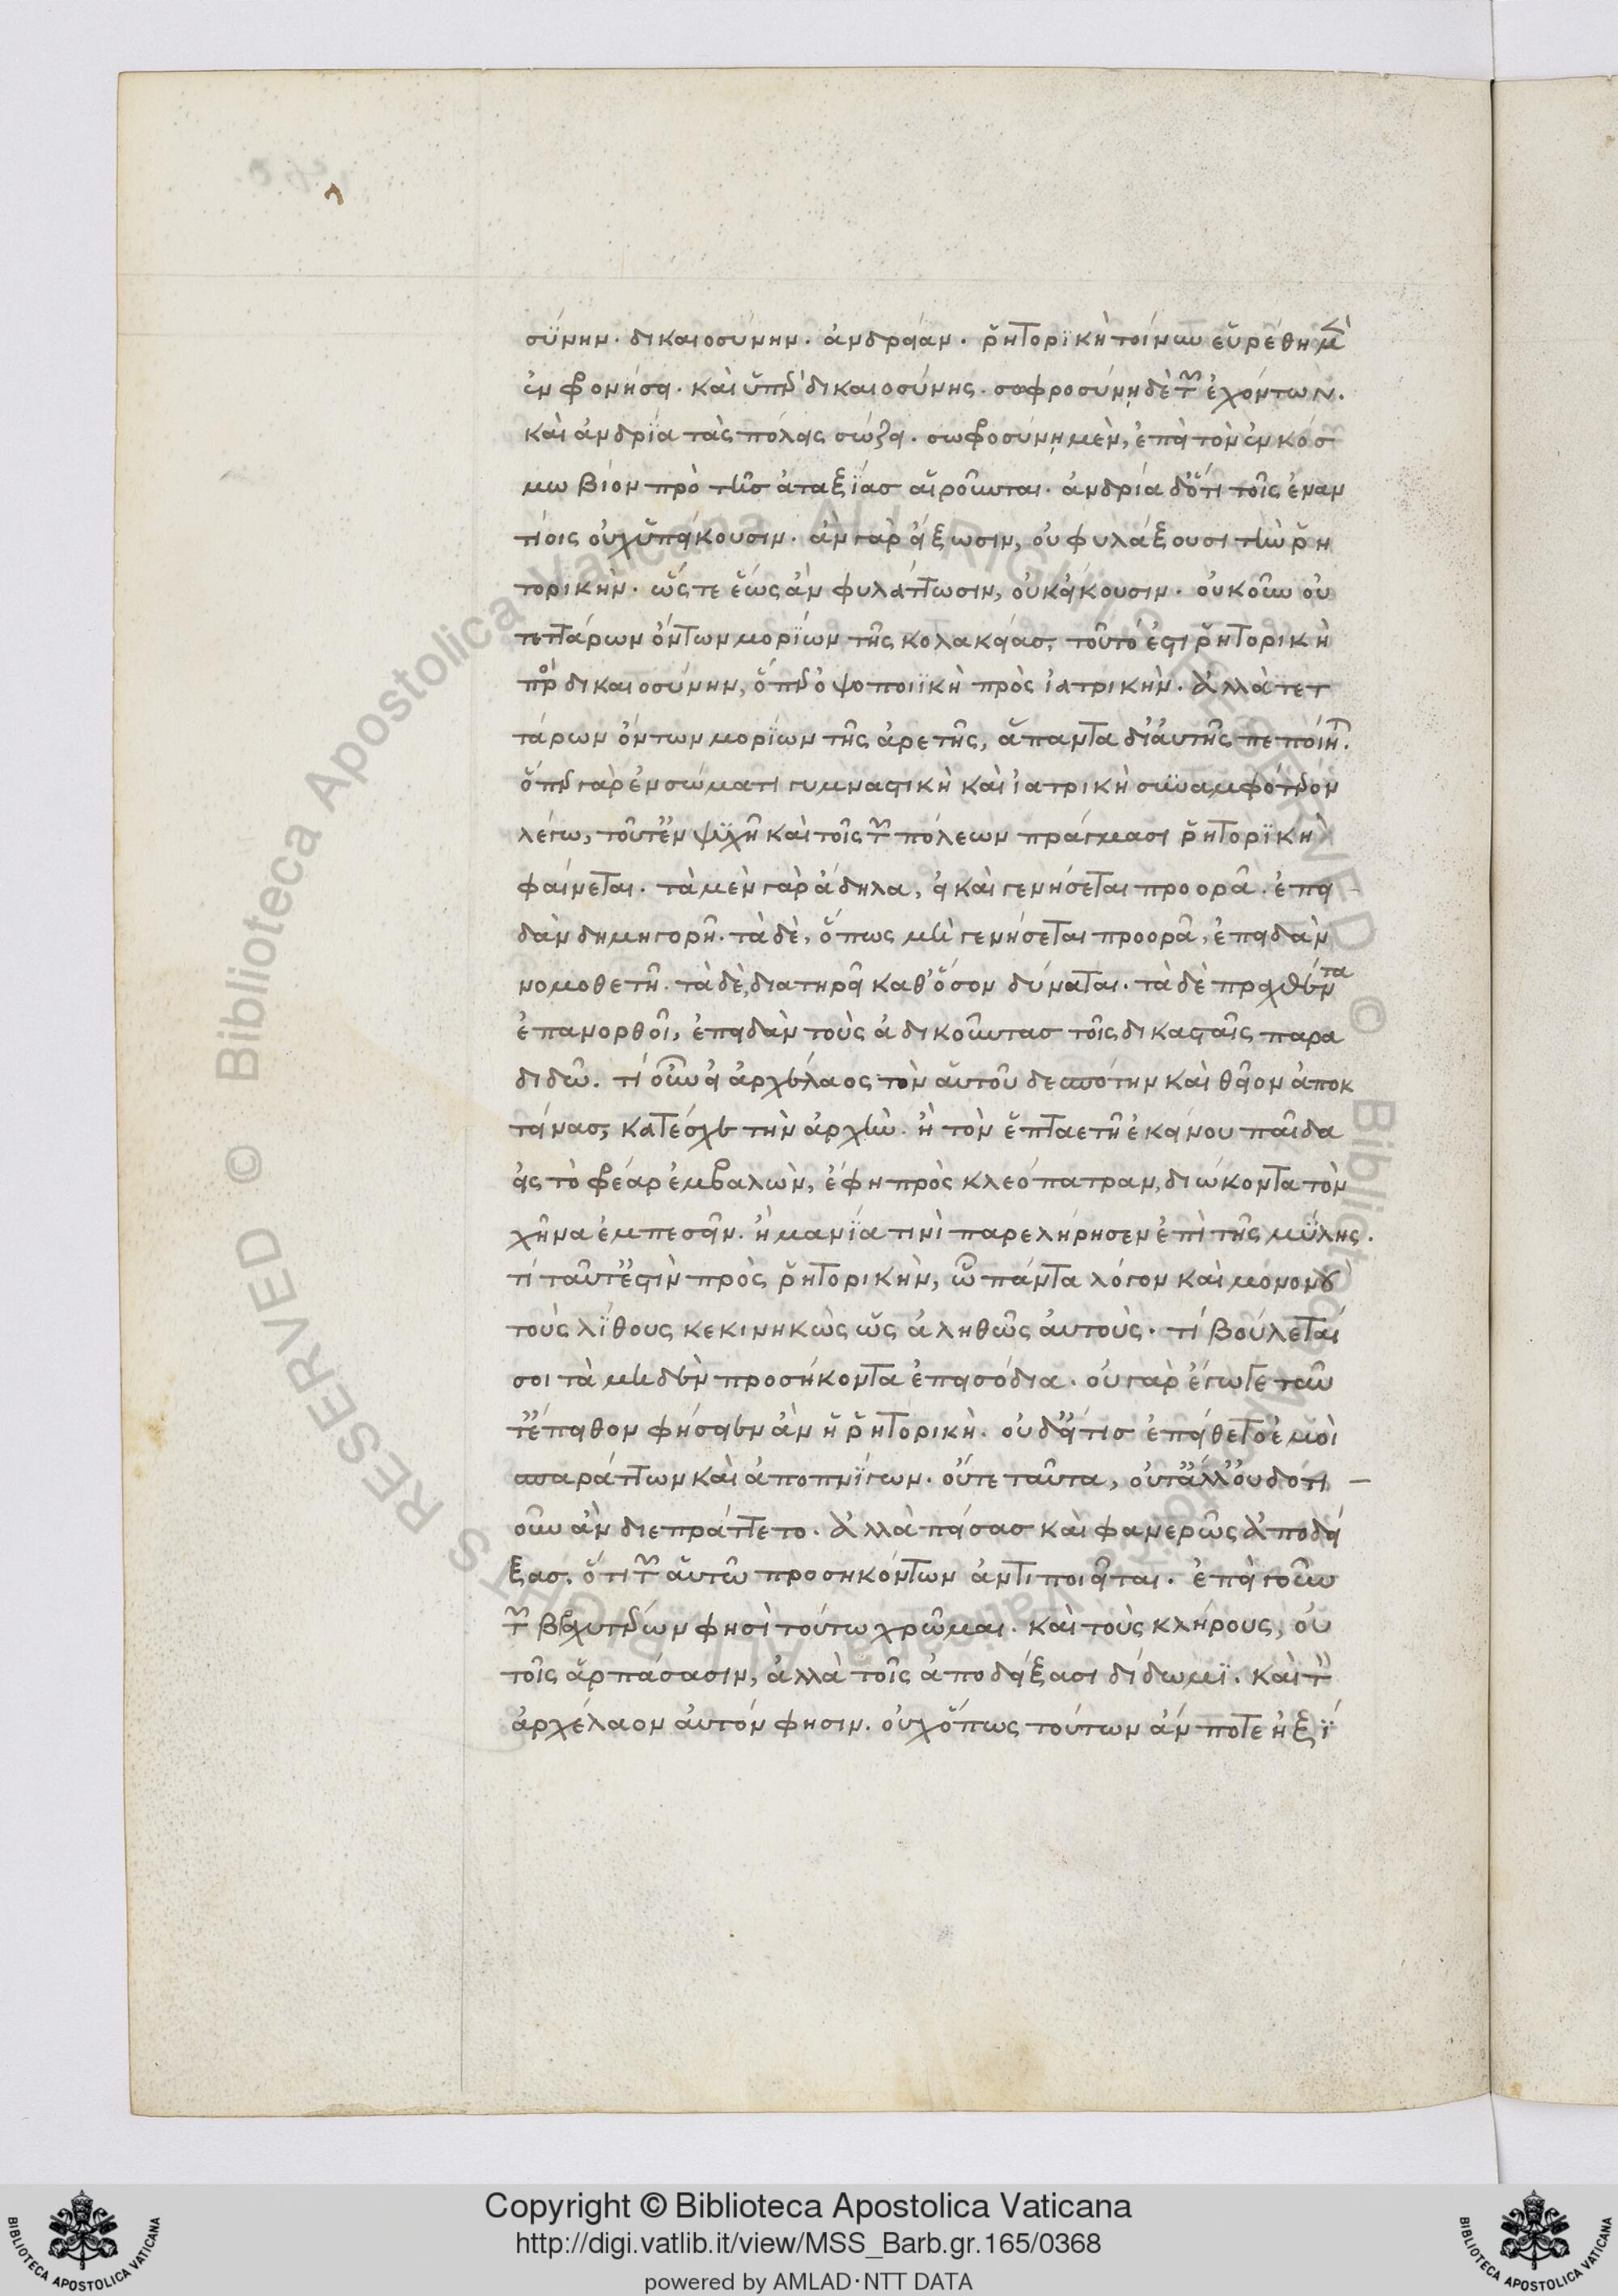 σύνην· δικαιοσύνην· ἀνδρείαν· ῥητορικὴ τοίνυν εὑρέθη μὲν
ἐν φρονήσει· καὶ ὑπὲρ δικαιοσύνης· σωφροσύνῃ δὲ τῶν ἐχόντων.
καὶ ἀνδρία τὰς πόλεις σώζει· σωφροσύνῃ μὲν, ἐπεὶ τὸν ἐν κόσ
μω βίον πρὸ τῆς ἀταξίας αἱροῦνται· ἀνδρία δ' ὅτι τοῖς ἐναν
τίοις οὐχ ὑπείκουσιν· ἂν γὰρ εἴξωσιν, οὐ φυλάξουσι τὴν ῥη
τορικήν· ὥς τε ἕως ἂν φυλάττωσιν, οὐκ εἴκουσιν· οὐκοῦν οὐ
τεττάρων ὄντων μορίων τῆς κολακείας, τοῦτό ἐστι ῥητορικὴ
πρὸς δικαιοσύνην, ὅπερ ὀψοποιικὴ πρὸς ἰατρικήν. ἀλλὰ τετ
τάρων ὄντων μορίων τῆς ἀρετῆς, ἅπαντα δι' αὐτῆς πεποίηται.
ὅπερ γὰρ ἐν σώματι γυμναστικὴ καὶ ἰατρικὴ συναμφότερον
λέγω, τοῦτ' ἐν ψυχῇ καὶ τοῖς τῶν πόλεων πράγμασι ῥητορικὴ
φαίνεται· τὰ μὲν γὰρ ἄδηλα, εἰ καὶ γενήσεται προορᾶ· ἐπει
δὰν δημηγορῆ· τὰ δὲ, ὅπως μὴ γενήσεται προορᾶ, ἐπειδὰν
νομοθετῆ· τὰ δὲ, διατηρεῖ καθ' ὅσον δύναται· τὰ δὲ πραχθέντα
ἐπανορθοῖ, ἐπειδὰν τοὺς ἀδικοῦντας τοῖς δικασταῖς παρα
διδῶ. τί οὖν εἰ ἀρχέλαος τὸν αὑτοῦ δεσπότην καὶ θεῖον ἀποκ
τείνας, κατέσχε τὴν ἀρχὴν· ἢ τὸν ἑπταετῆ ἐκείνου παῖδα
εἰς τὸ φρέαρ ἐμβαλὼν, ἔφη πρὸς κλεόπατραν, διώκοντα τὸν
χῆνα ἐμπεσεῖν. ἢ μανία τινὶ παρελήρησεν ἐπὶ τῆς μύλης.
τί ταῦτ' ἐστὶν πρὸς ῥητορικὴν, ὦ πάντα λόγον καὶ μόνον οὐ
τοὺς λίθους κεκινηκὼς ὡς ἀληθῶς αὐτοὺς· τί βούλεταί
σοι τὰ μηδὲν προσήκοντα ἐπεισόδια· οὐ γὰρ ἔγωγε ταῦ
τ' ἔπειθον φήσειεν ἂν ἡ ῥητορικὴ. οὐδ' εἴ τις ἐπείθετο ἐμοὶ
σπαράττων καὶ ἀποπνίγων· οὔτε ταῦτα, οὔτ' ἄλλ' οὐδ' ὁτι
οῦν ἂν διεπράττετο. ἀλλὰ πείσας καὶ φανερῶς ἀποδεί
ξας, ὅτι τῶν αὑτῶ προσηκόντων ἀντιποιεῖται· ἐπεὶ γοῦν
τῶν βραχυτέρων φησὶ τούτω χρῶμαι· καὶ τοὺς κλήρους, οὐ
τοῖς ἁρπάσασιν, ἀλλὰ τοῖς ἀποδείξασι δίδωμι. καὶ τὸν
ἀρχέλαον αὐτόν φησιν· οὐχ ὅπως τούτων ἄν ποτε ἠξί
Copyright © Biblioteca Apostolica Vaticana
http://digi.vatlib.it/view/MSS_Barb.gr.165/0368
powered by AMLAD·NTT DATA
BIBLIOTECA APOSTOLICA VATICANA
BIBLIOTECA APOSTOLICA VATICANA